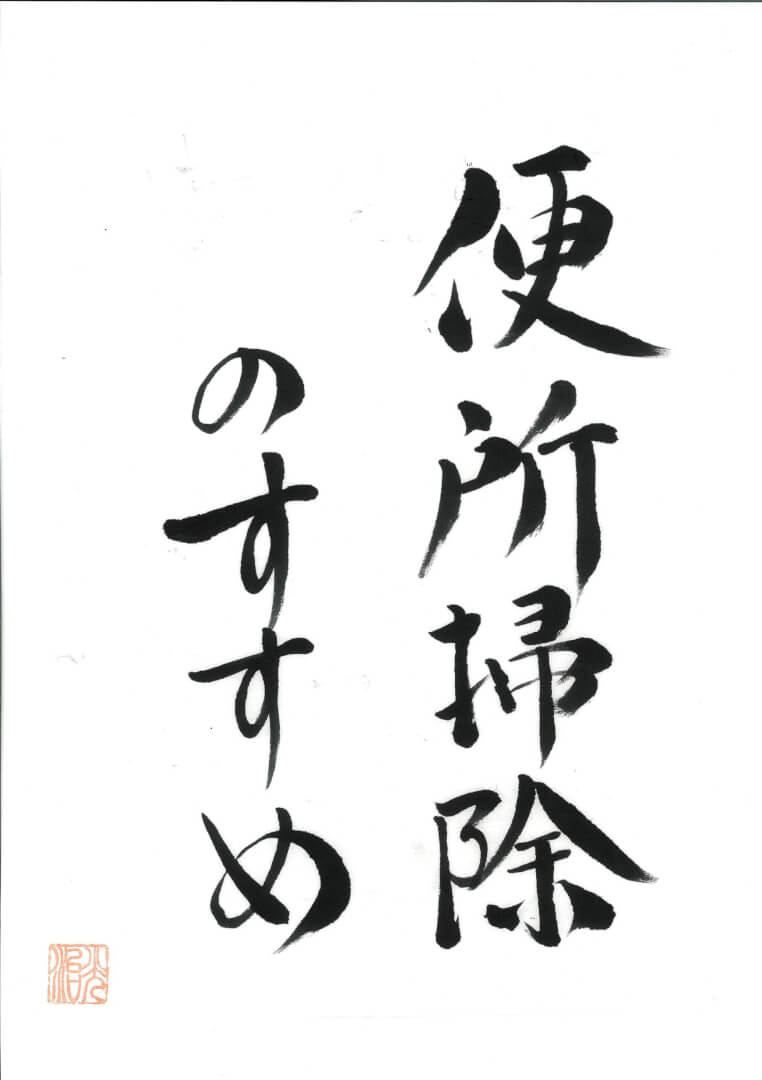 便所掃除
のすすめ